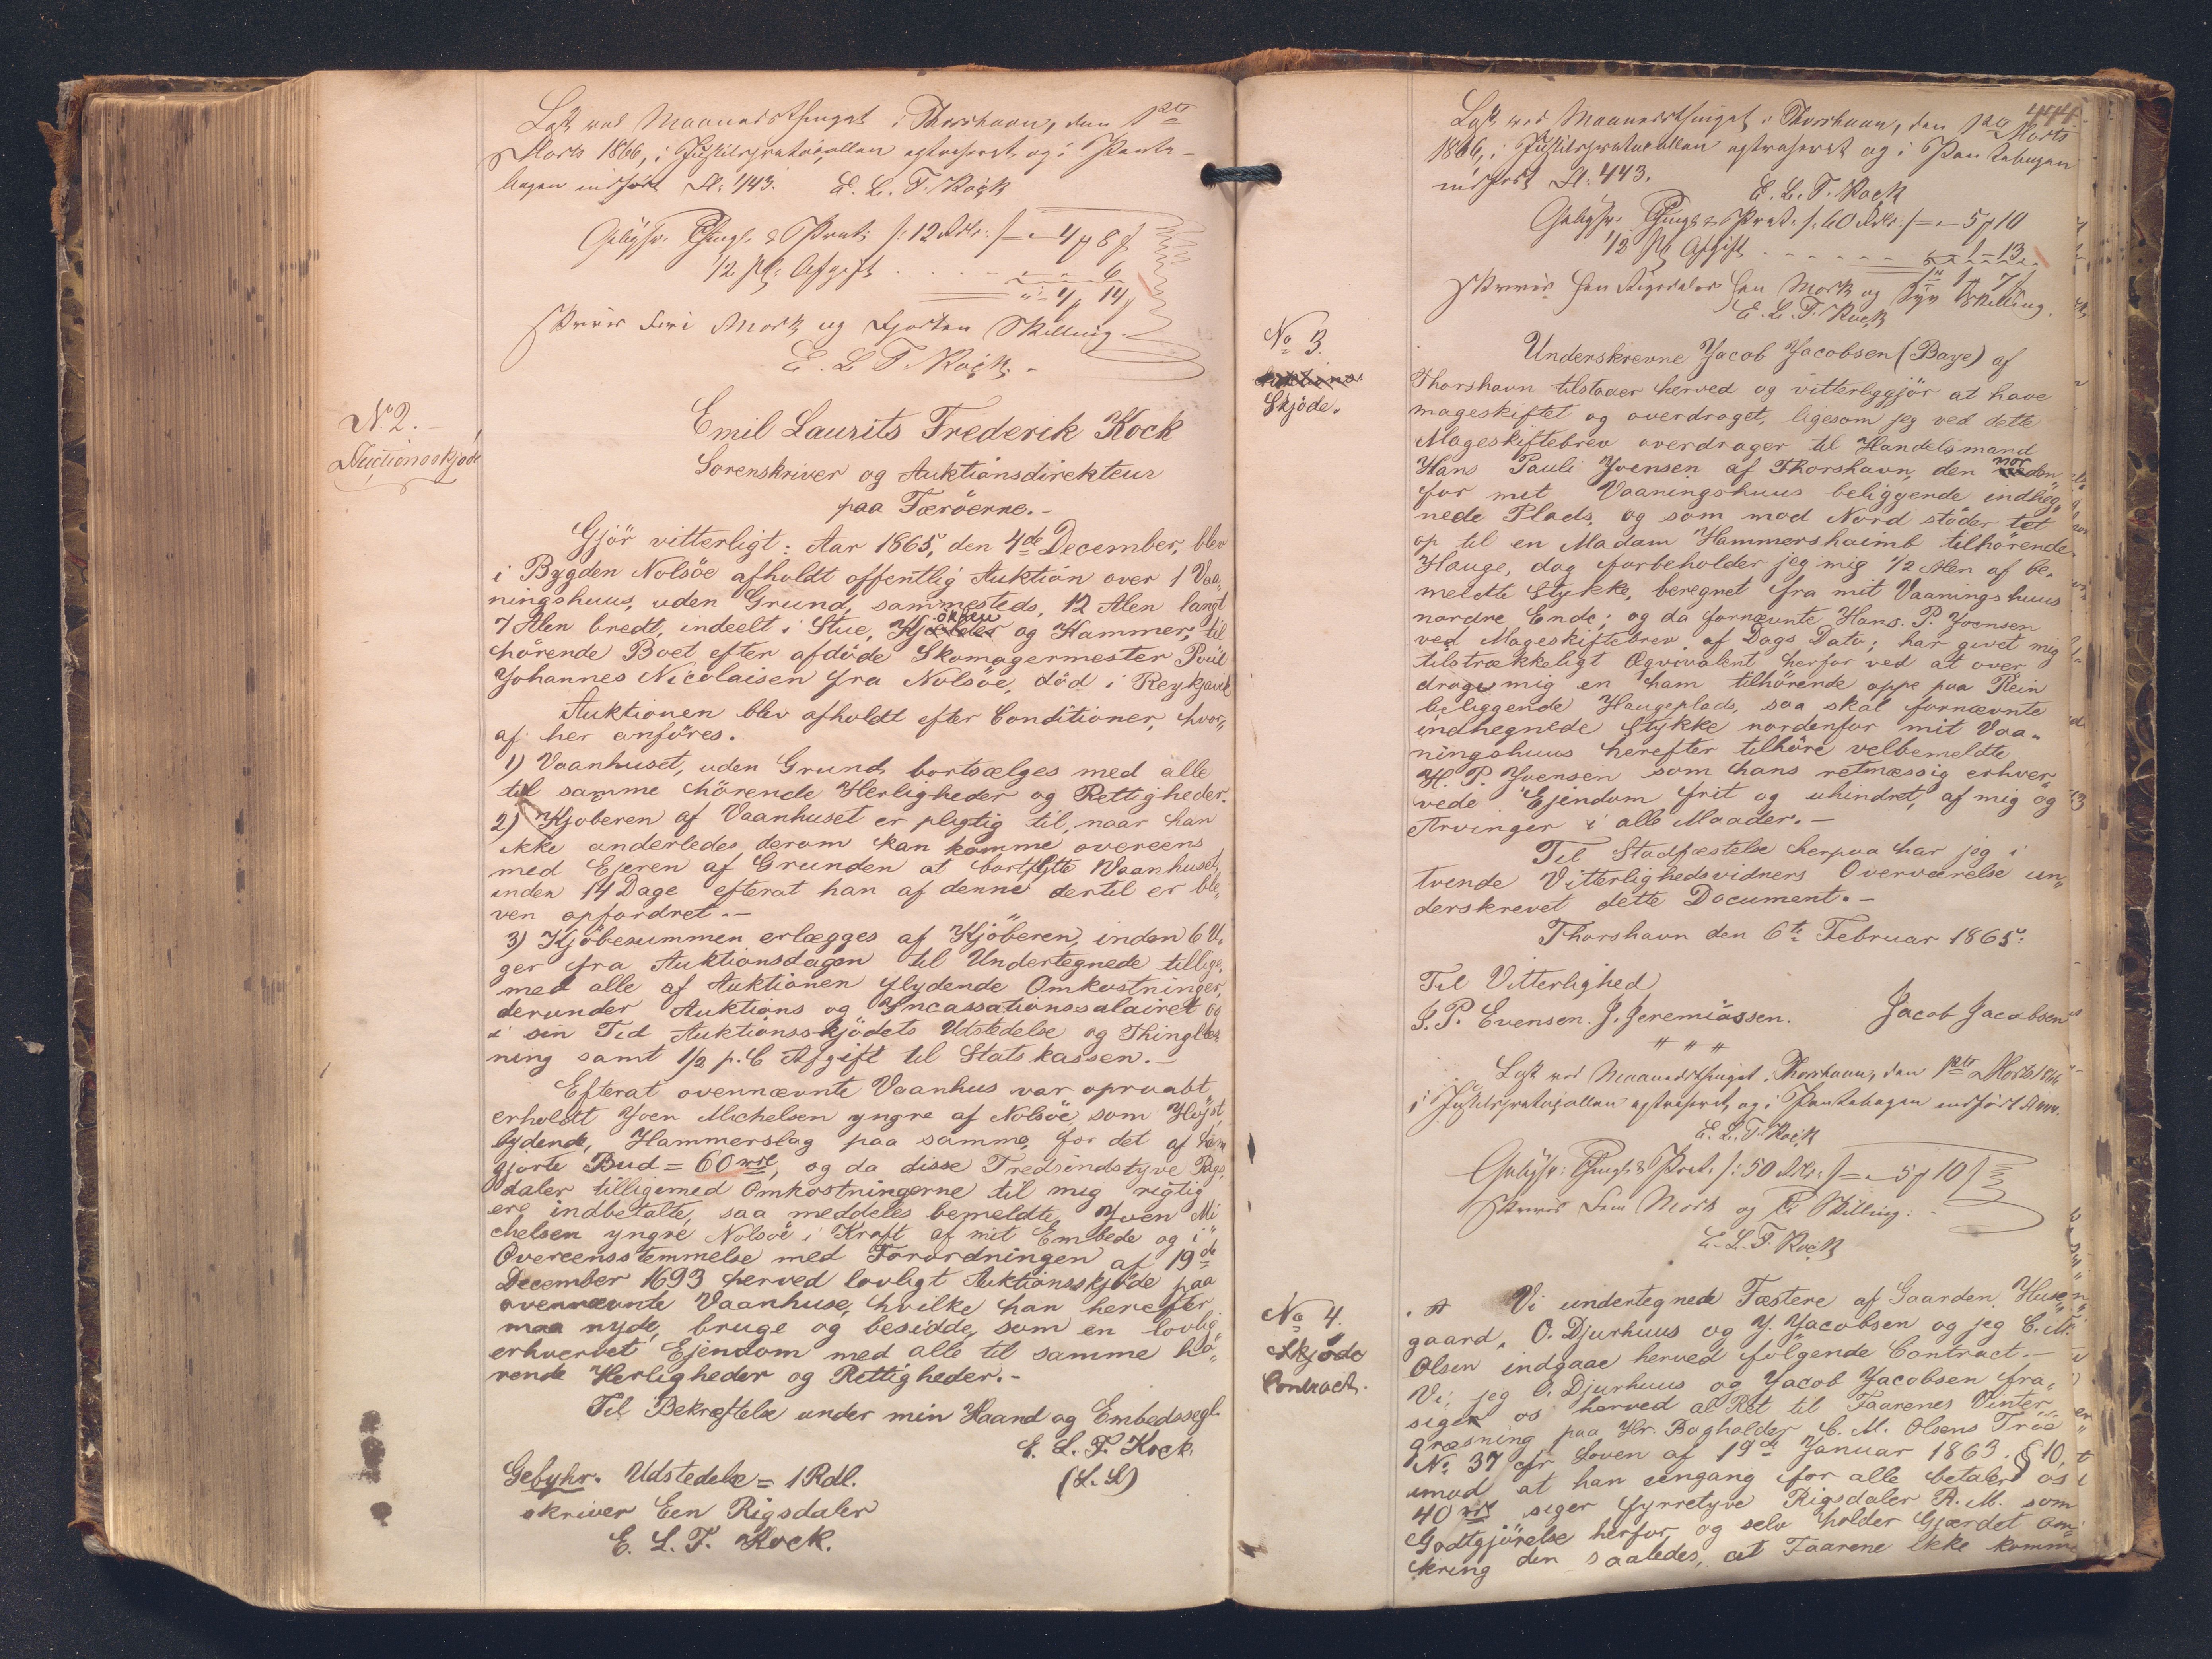 Læst ved Maanedsthinget i Thorshavn, den 1ste
Marts 1866, i Justitsprotocollen extraheret og i Pante-
bogen indført Fl: 443. E. L. F. Kock
Gebyhr. Thingl. & Prot: /: 12 Rdl: /= „ 4 ₰ 8 ſ
1/2 pCt: Afgift . . . . „ „ 6
„ 4 ₰ 14 ſ
skriver Fire Mark og Fjorten Skilling.
E. L. F. Kock. -
No 2.
Auctionsskjøde
Emil Laurits Frederik Kock
Sorenskriver og Auktionsdirekteur
paa Færöerne.-
Gjör vitterligt: Aar 1865, den 4de December, blev
i Bygden Nolsöe afholdt offentlig Auktion over 1 Vaa„
ningshuus, uden Grund, sammesteds, 12 Alen langt
7 Alen bredt, indeelt i Stue, Kjökken og Kammer, til
hörende Boet efter afdöde Skomagermester Poül
Johannes Nicolaisen fra Nolsöe, död i Reykjavik
Auktionen blev afholdt efter Conditioner, hvor„
af her anföres.
1) Vaanhuset, uden Grund, bortsælges med alle
til samme hörende Herligheder og Rettigheder.
2) Kjøberen af Vaanhuset er pligtig til, naar han
ikke anderledes derom kan komme overeens
med Ejeren af Grunden at bortflytte Vaanhuset,
inden 14 Dage efterat han af denne dertil er ble„
ven opfordret.-
3) Kjöbesummen erlægges af Kjöberen, inden 6 U„
ger fra Auktionsdagen til Undertegnede tillige„
med alle af Auktionen flydende Omkostninger,
derunder Auktions og Incassationssalairet og
i sin Tid Auktionsskjödets Udstedelse og Thinglæs
ning samt 1/2 p. C Afgift til Statskassen.-
Efterat ovennævnte Vaanhus var opraabt,
erholdt Joen Michelsen yngre af Nolsöe, som Höjst„
bydende, Hammerslag paa samme, for det af ham
gjorte Bud = 60 rdl, og da disse Tredsindstyve Rigs„
daler tilligemed Omkostningerne til mig rigtig
ere indbetalte, saa meddeles bemeldte Joen Mi
chelsen yngre Nolsöe i Kraft af mit Embede og i
Overeensstemmelse med Forordningen af 19de
December 1693 herved lovligt Auktionsskjöde paa
ovennævnte Vaanhuse, hvilke han herefter
maa nyde, bruge og besidde, som en lovlig
erhvervet Ejendom med alle til samme hö„
rende Herligheder og Rettigheder.-
Til Bekræftelse under min Haand og Embedssegl.
E. L. F. Kock.
(L. S.)
Gebyhr. Udstedelse = 1 Rdl.
skriver Een Rigsdaler
E. L. F. Kock.
444.
Læst ved Maanedsthinget i Thorshavn, den 1ste Marts
1866, i Justitsprotocollen extraheret og i Pantebogen
indført Fl: 443.
E. L. F. Kock
Gebyhr. Thingl. & Prot. /: 60 Rdlr: /= „ 5 ₰ 10
1/2 pCt Afgift . . . . . . „ 1 – 13
1 „ 1 „ 7 ſ
skriver Een Rigsdaler Een Mark og Syv Skilling.
E. L. F. Kock
No 3.
Skjöde.
Underskrevne Jacob Jacobsen (Baye) af
Thorshavn tilstaaer herved og vitterliggjör at have
mageskiftet og overdraget, ligesom jeg ved dette
Mageskiftebrev overdrager til Handelsmand
Hans Pauli Joensen af Thorshavn, den norden„
for mit Vaaningshuus beliggende indheg„
nede Plads, og som mod Nord stöder tet
op til en Madam Hammershaimb tilhörende
Hauge, dog forbeholder jeg mig 1/2 Alen af be„
meldte Stykke, beregnet fra mit Vaaningshuus
nordre Ende; og da fornævnte Hans. P. Joensen
ved Mageskiftebrev af Dags Dato; har givet mig
tilstrækkeligt Æqvivalent herfor ved at over
drage mig en ham tilhörende oppe paa Rein
beliggende Haugeplads, saa skal fornævnte
indhegnede Stykke nordenfor mit Vaa„
ningshuus herefter tilhöre velbemeldte
H. P. Joensen som hans retmæssig erhver„
vede Ejendom frit og uhindret, af mig og
Arvinger i alle Maader.-
Til Stadfæstelse herpaa har jeg i
tvende Vitterlighedsvidners Overværelse un„
derskrevet dette Document.-
Thorshavn den 6te Februar 1865.
Til Vitterlighed
J. P. Evensen. J. Jeremiassen. Jacob Jacobsen
Læst ved Maanedsthinget i Thorshavn, den 1ste Marts 1866
i Justitsprotocollen extraheret og i Pantebogen indført Fl 444.
E. L. F. Kock
Gebyhr: Thingl: & Prot. /: 50 Rdlr: /= „ 5 ₰ 10 ſ
skriver Fem Mark og Ti Skilling.
E. L. F. Kock
No 4.
Skjøde
Contract.
Vi undertegnede Fæstere af Gaarden Huse„
gaard, O. Djurhuus og J. Jacobsen og jeg C. M.
Olsen indgaae herved fölgende Contract.-
Vi, jeg O. Djurhuus og Jacob Jacobsen fra„
siger os herved al Ret til Faarenes Vinter„
græsning paa Hr. Bogholder C. M. Olsens Tröe
No 37 cfr Loven af 19de Januar 1863. § 10,
imod at han eengang for alle betaler os
40 rdl siger fyrretyve Rigsdaler R. M. som
Godtgjörelse herfor, og selv holder Gjærdet om„
kring den saaledes, at Faarene ikke komme